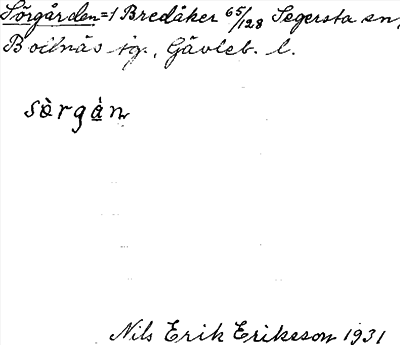 Sörgården=1 Bredåker 65/128 Segersta sn,
Bollnäs tg., Gävleb. l.
sö̀rgàn
Nils Erik Erikeson 1931